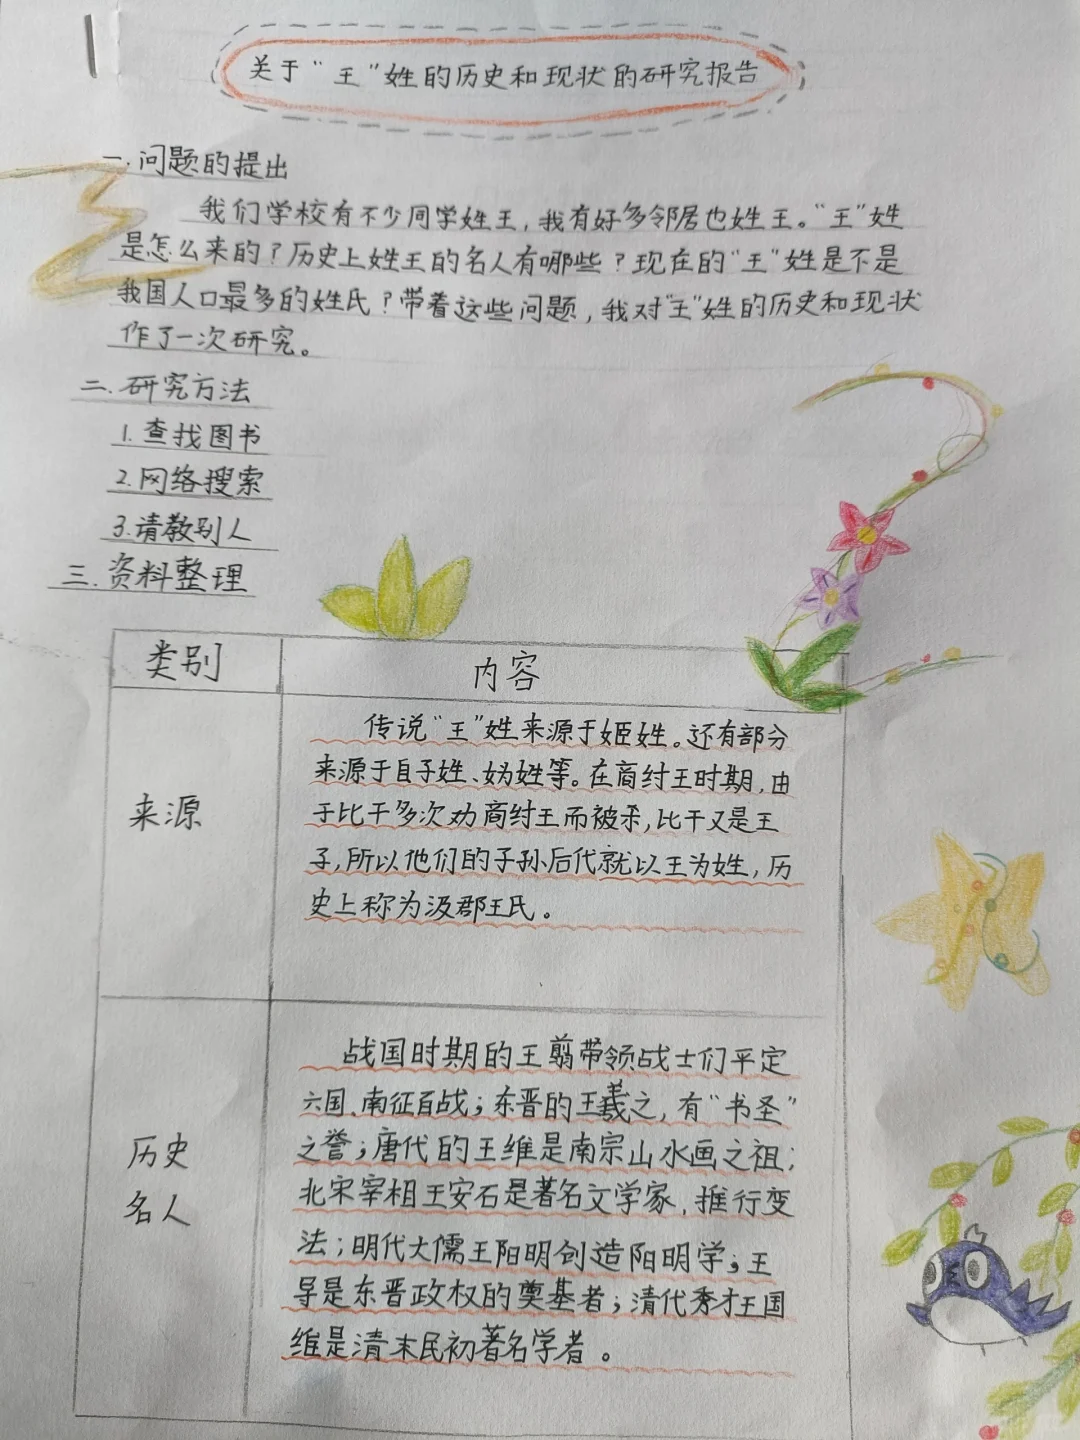 关于“王”姓的历史和现状的研究报告
一.问题的提出
我们学校有不少同学姓王,我有好多邻居也姓王。“王”姓
是怎么来的?历史上姓王的名人有哪些?现在的“王”姓是不是
我国人口最多的姓氏?带着这些问题,我对“王”姓的历史和现状
作了一次研究。
二.研究方法
1.查找图书
2.网络搜索
3.请教别人
三.资料整理
类别
内容
来源
传说“王”姓来源于姬姓。还有部分
来源于自子姓、妫姓等。在商纣王时期,由
于比干多次劝商纣王而被杀,比干又是王
子,所以他们的子孙后代就以王为姓,历
史上称为汲郡王氏。
历史
名人
战国时期的王翦带领战士们平定
六国、南征百战;东晋的王羲之,有“书圣”
之誉;唐代的王维是南宗山水画之祖;
北宋宰相王安石是著名文学家,推行变
法;明代大儒王阳明创造阳明学;王
导是东晋政权的奠基者;清代秀才王国
维是清末民初著名学者。